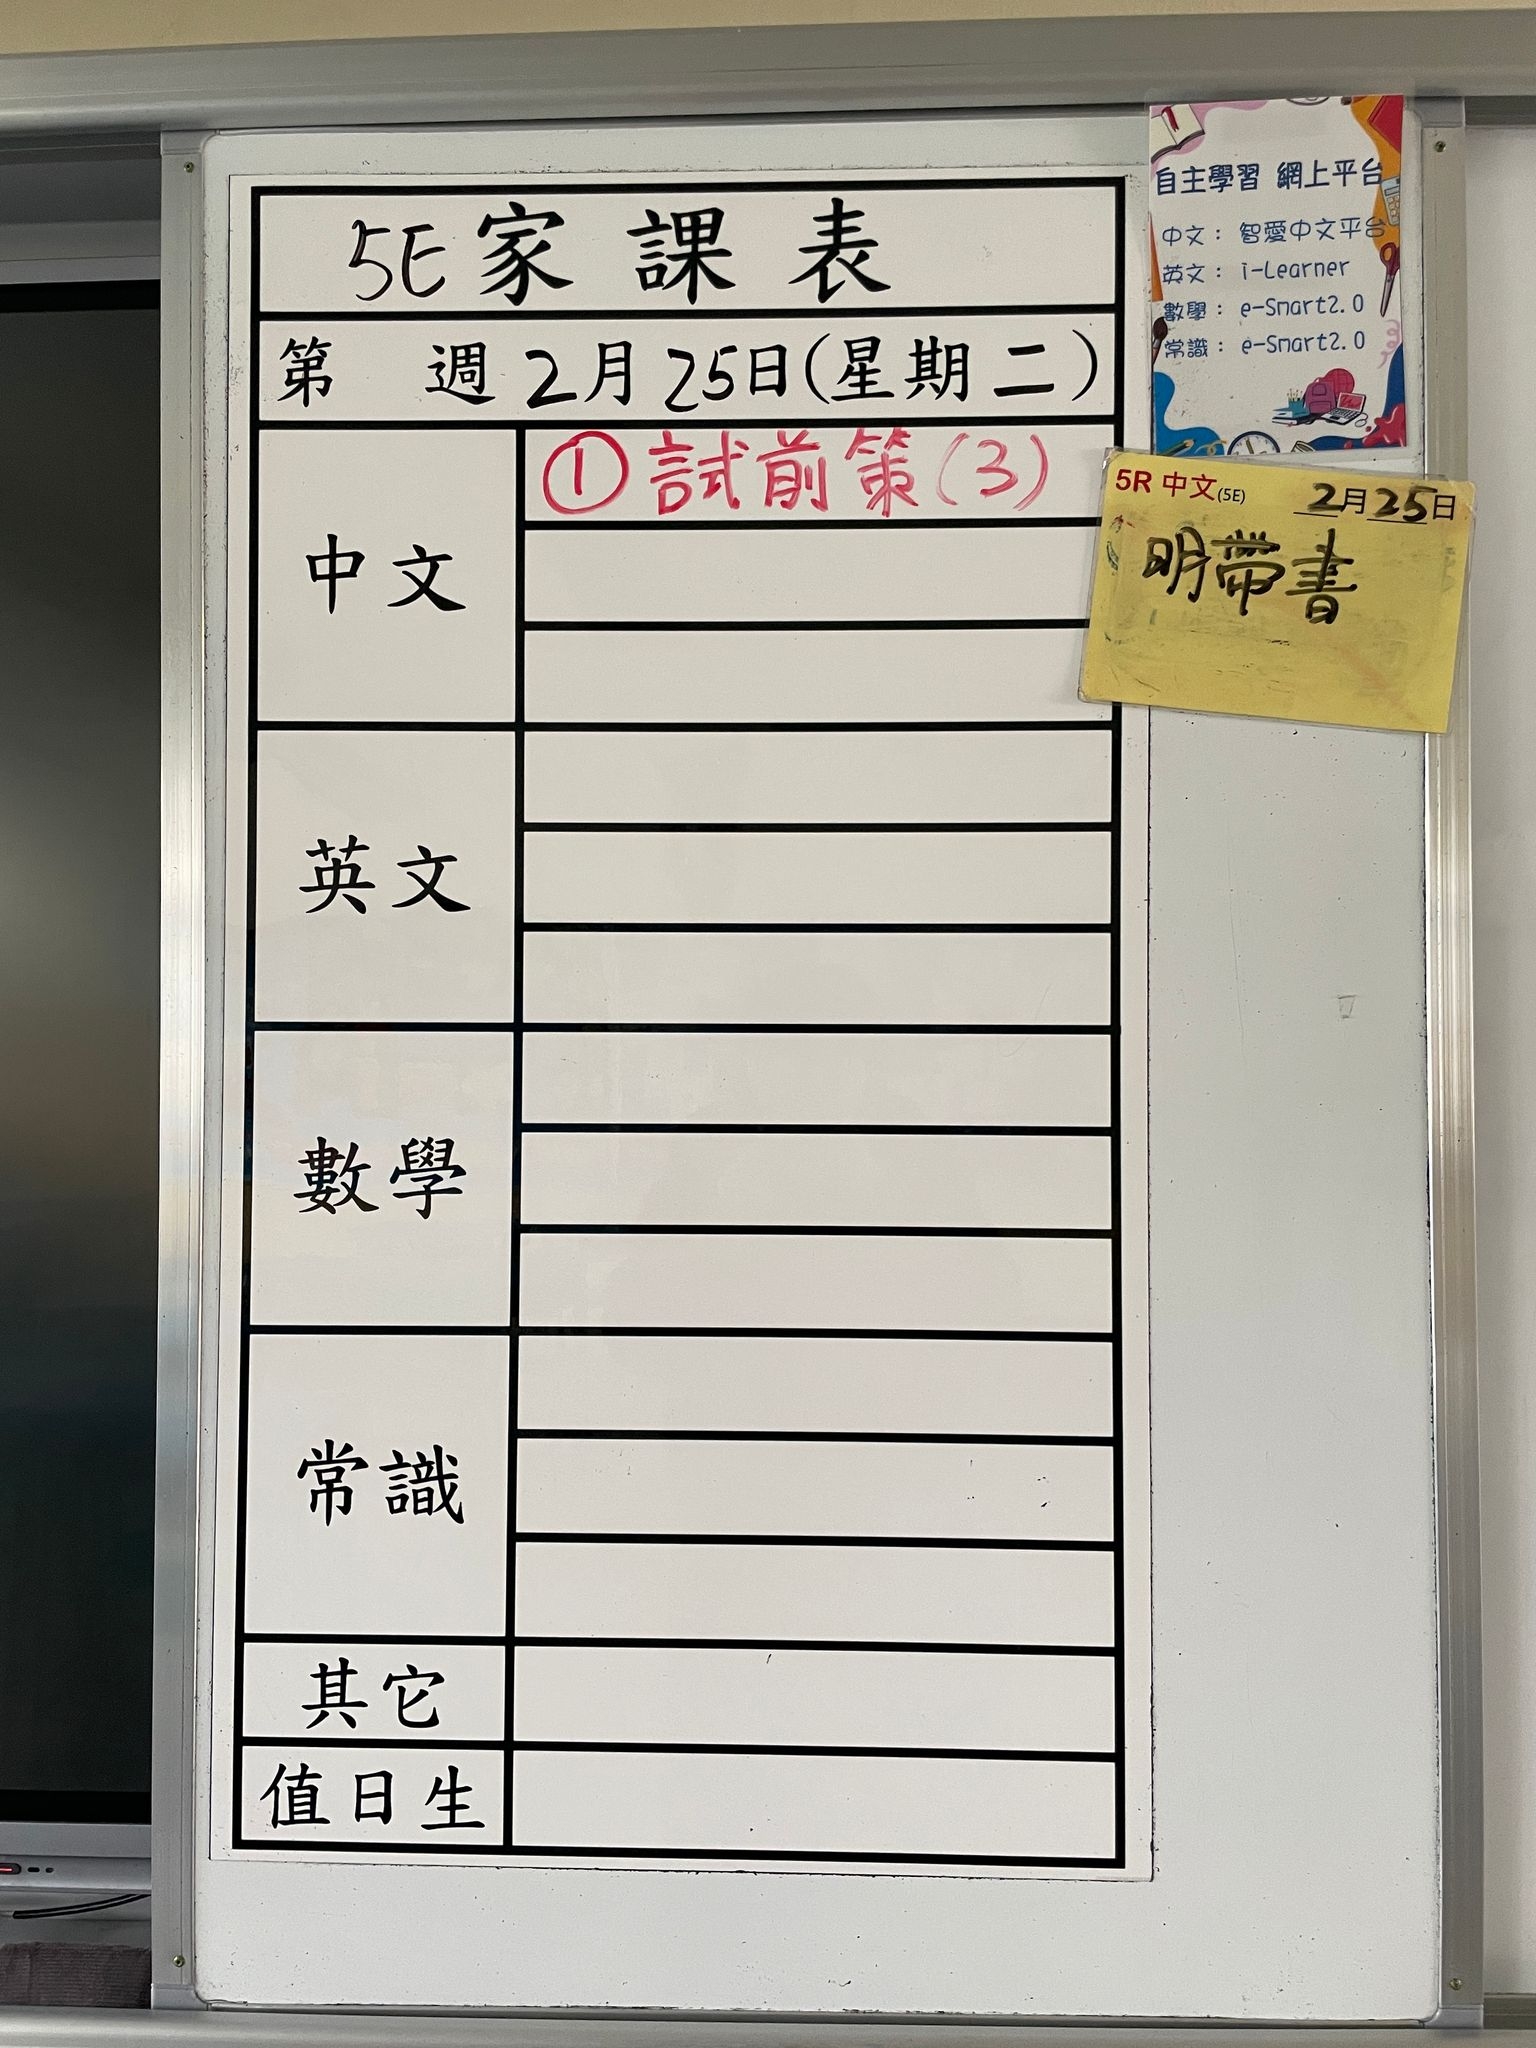 5E家課表
第 週 2月25日(星期二)
中文
①試前策(3)
英文
數學
常識
其它
值日生
自主學習 網上平台
中文： 智愛中文平台
英文： i-Learner
數學： e-Smart2.0
常識： e-Smart2.0
5R 中文(5E) 2月25日
明帶書